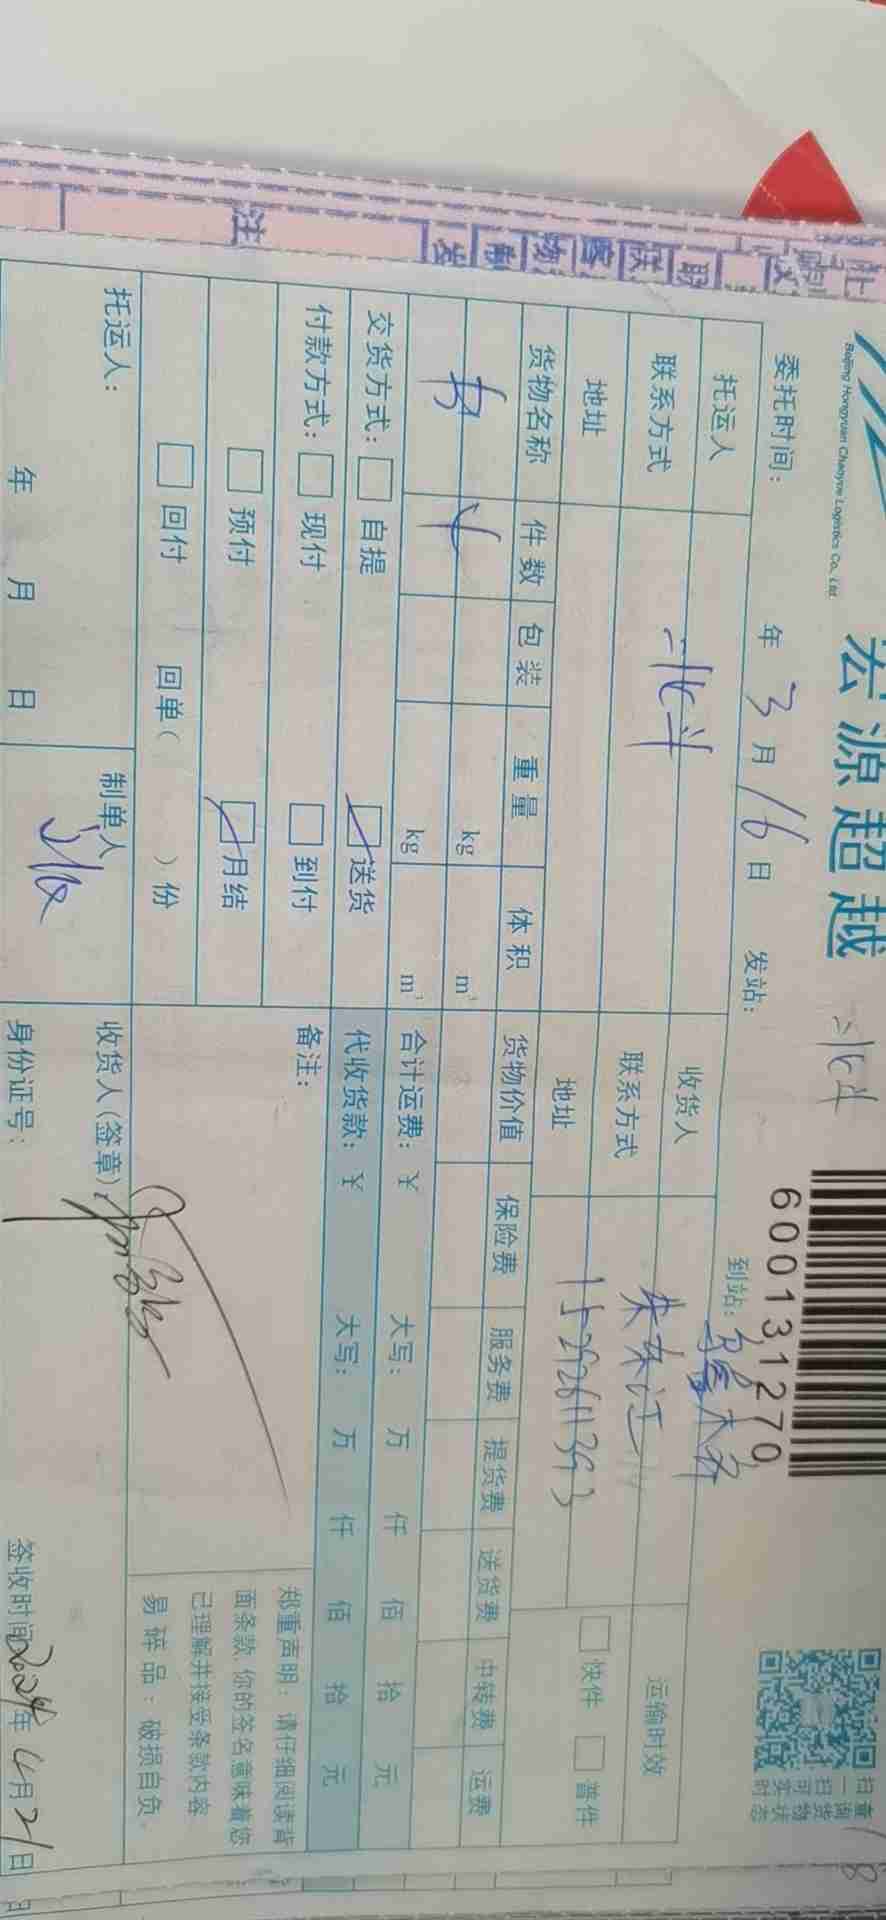 Beijing Hongyuan Chaoyue Logistics Co., Ltd.
宏源超越
6001311270
扫一扫 查询货物状态
委托时间: 年 3 月 16 日 发站: 北斗 到站:
托运人 北斗 收货人 朱东江 运输时效
联系方式 联系方式 15292611393 快件 普件
地址 地址
货物名称 件数 包装 重量 体积 货物价值 保险费 服务费 提货费 送货费 中转费 运费
书 kg m³
kg m³
交货方式: 自提 送货 合计运费:¥ 大写: 万 仟 佰 拾 元
付款方式: 现付 到付 代收货款:¥ 大写: 万 仟 佰 拾 元
预付 月结 备注:
回付 回单( )份
郑重声明:请仔细阅读背
面条款,你的签名意味着您
已理解并接受条款内容
易碎品:破损自负。
托运人: 制单人 收货人(签章)
年 月 日 身份证号: 签收时间 2024年4月21日